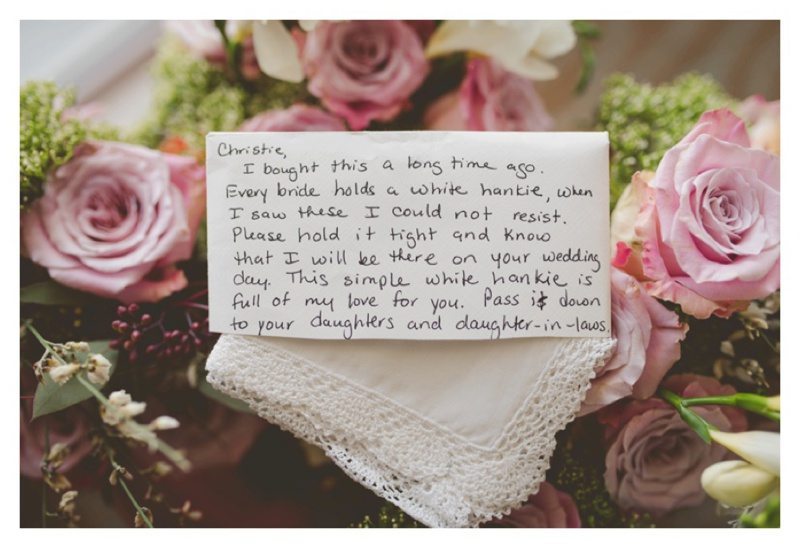 Christie,
I bought this a long time ago.
Every bride holds a white hankie, when
I saw these I could not resist.
Please hold it tight and know
that I will be there on your wedding
day. This simple white hankie is
full of my love for you. Pass it down
to your daughters and daughter-in-laws.